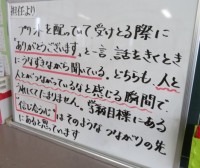 担任より
プリントを配っていて受けとる際に
"ありがとうございます"と一言、話をきくとき
にうなずきながら聞いている。どちらも人と
人とがつながっているなと感じる瞬間で、
うれしくてたまりません。学級目標にある
信じ合う
はそのようなつながりの先
にあると思っています